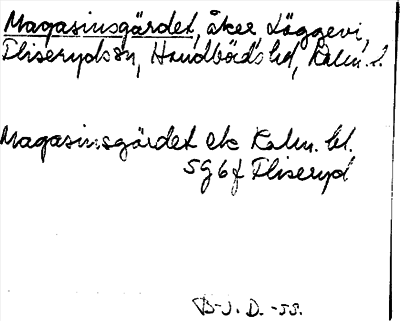 Magasinsgärdet, åker, Läggevi,
Fliseryds sn, Handbörds hd, Kalm. l.
Magasinsgärdet ek Kalm. bl.
5G6f Fliseryd
B-J. D. -55.